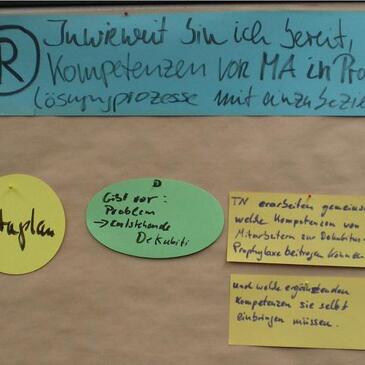 R
Inwieweit bin ich bereit,
Kompetenzen von MA in Pro
lösungsprozesse mit einzubezie
taplan
D
Gibt vor:
Problem
→ entstehende
Dekubiti
TN erarbeiten gemeins
welche Kompetenzen von
Mitarbeitern zur Dekubitus-
Prophylaxe beitragen können
und welche ergänzenden
Kompetenzen sie selbst
einbringen müssen.